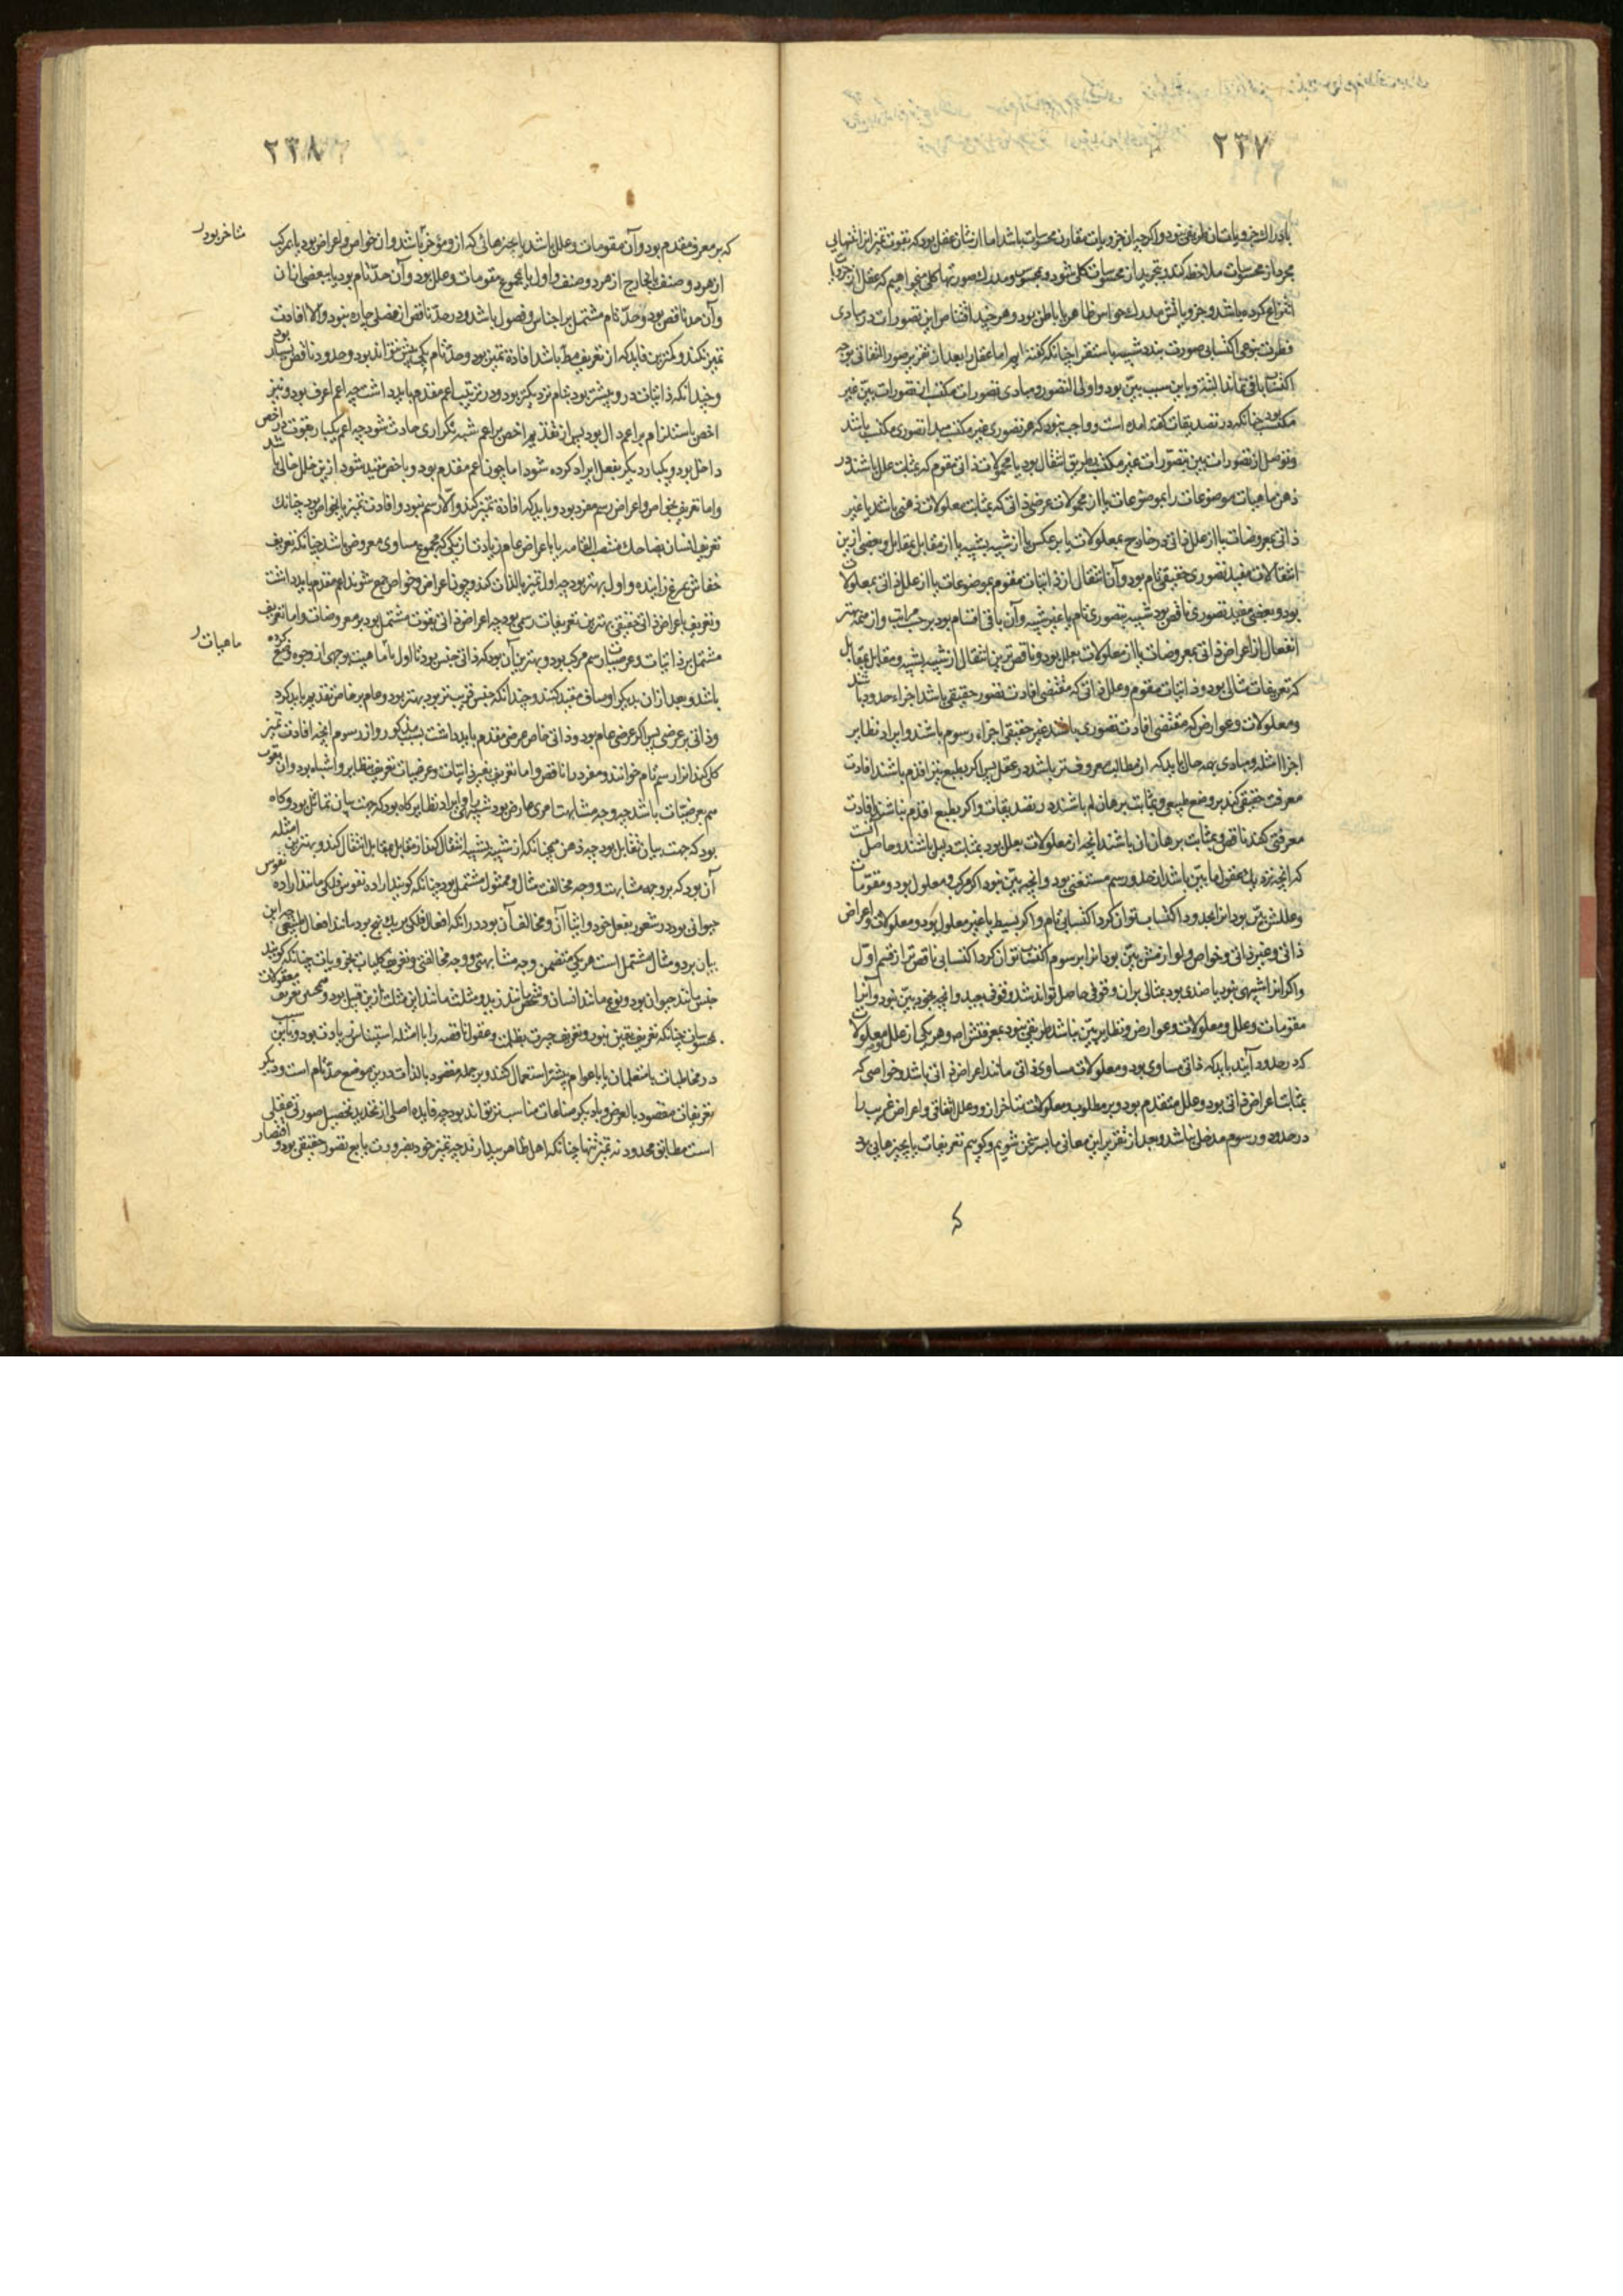 ٢٣٧
بادراك جزويات شان طريقى نبود و اكر چه از جزويات مقارن محسوسات باشد اما از شان عقل بود كه بقوت تميز انرا تنهايى
مجرد از محسوسات ملاحظه كند و بتجريد از محسوسات كلى شود و محسوس و مدرك صورتها كلى ميخواهيم كه عقل از جزويات
انتزاع كرده باشد و جزوياتش مدرك حواس ظاهر يا باطن بود و هر چند اقتناص اين تصورات در مبادى
فطرت بنوعى اكتسابى صورت بندد شبيه باستقرا چنانكه كفته ايم اما عقل را بعد از تقرير صور التفاتى بوجه
اكتساب باقى نماند البته و باين سبب بين بود و اولى التصور و مبادى تصورات مكتسب از تصورات بين غير
مكتسب بود چنانكه در تصديقات كفته امده است و واجب نبود كه هر تصورى غير مكتسب مبدا تصورى مكتسب باشد
و توصل از تصورات بين بتصورات غير مكتسب بطريق انتقال بود يا محمولات ذاتى مقوم كه بمثابت علل باشند در
ذهن ماهيات موضوعات را بموضوعات يا از محمولات عرضى ذاتى كه بمثابت معلولات ذهنى باشد يا غير
ذاتى بمعروضات يا از علل ذاتى در خارج بمعلولات يا بر عكس يا از شبيه بشبيه يا از مقابل بمقابل و بعضى ازين
انتقالات مفيد تصورى حقيقى تام بود و آن انتقال از ذاتيات مقوم بموضوعات يا از علل ذاتى بمعلولات
بود و بعضى مفيد تصورى ناقص بود شبيه بتصورى تام يا غير شبيه و آن باقى اقسام بود بر حسب مراتب و از همه بهتر
انفعال از اعراض ذاتى بمعروضات يا از معلولات بعلل بود و ناقص ترين انتقال از شبيه بشبيه و مقابل بمقابل
كه تعريفات مثالى بود و ذاتيات مقوم و علل ذاتى كه مقتضى افادت تصور حقيقى باشد اجزاء حدود باشند
و معلولات و عوارض كه مقتضى افادت تصورى باشند غير حقيقى اجزاء رسوم باشند و ايراد نظاير
اجزا امثله و مبادى بهمه حال بايد كه از مطالب معروف تر باشد در عقل پس اكر بطبع نيز اقدم باشند افادت
معرفت حقيقى كند بر وضع طبيعى و بمثابت برهان لم باشند در تصديقات و اكر بطبع اقدم نباشند افادت
معرفتى كنند ناقص و بمثابت برهان ان باشند انچه از معلولات بعلل بود بمثابت دليل باشند و حاصل انست
كه انچه نزديك عقول ما بين باشد از حد و رسم مستغنى بود و انچه بين نبود اكر مركب و معلول بود و مقومات
و عللش بين بود انرا بحدود اكتساب توان كرد اكتسابى تام و اكر بسيط يا غير معلول بود و معلولات و اعراض
ذاتى و غير ذاتى و خواص و لوازمش بين بود انرا برسوم اكتساب توان كرد اكتسابى ناقص تر از قسم اول
و اكر انرا شبيهى بود يا ضدى بود بمثالى بران وقوفى حاصل تواند شد وقوف بعيد و انچه بخود بين نبود و آنرا
مقومات و علل و معلولات و عوارض و نظاير بين نباشد طريقى نبود بمعرفتش اصلا و هر يكى از علل و معلولات
كه در حدود آيند بايد كه ذاتى مساوى بود و معلولات مساوى ذاتى مانند اعراض ذاتى باشد و خواصى كه
بمثابت اعراض ذاتى بود و علل متقدم بود و بر مطلوب و معلولات متاخر ازو و علل اتفاقى و اعراض غريب را
در حدود و رسوم مدخل نباشد و بعد از تقرير اين معانى با سر سخن شويم و كوييم تعريفات يا بچيزهايى بود
كه
٢٣٨
كه بر معرف مقدم بود و آن مقومات و علل باشد يا بچيزهائى كه ازو مؤخر باشد و ان خواص و اعراض بود يا بمركب
متاخر بود ر
از هر دو صنف يا بخارج از هر دو صنف و اول يا بمجموع مقومات و علل بود و آن حد تام بود يا ببعضى از ان
و آن حد ناقص بود و حد تام مشتمل بر اجناس و فصول باشد و در حد ناقص از فصلى چاره نبود و الا افادت
تميز نكند و كمترين فايده كه از تعريف مطلوب باشد افادة تميز بود و حد تام يكى بيش نتواند بود و حدود ناقص بسيار بود
و چندانكه ذاتيات درو بيشتر بود بتام نزديكتر بود و در ترتيب اعم مقدم بايد داشت چه اعم اعرف بود و نيز
اخص باستلزام بر اعم دال بود پس از تقديم اخص بر اعم شبهه تكرارى حادث شود چه اعم يكبار بقوت در اخص
داخل بود و يكبار ديكر بفعل ايراد كرده شود اما چون اعم مقدم بود و باخص مقيد شود ازين خلل خالى باشد
و اما تعريف بخواص و اعراض رسم مفرد بود و بايد كه افادة تميز كند و الا رسم نبود و افادت تميز يا بخواص بود چنانك
تعريف انسان بضاحك منتصب القامه يا باعراض عام زيادت از يكى كه مجموع مساوى معروض باشد چنانكه تعريف
خفاش بمرغ زاينده و اول بهتر بود چه اول تميز بالذات كند و چون اعراض و خواص جمع شوند اعم مقدم بايد داشت
و تعريف باعراض ذاتى حقيقى بهترين تعريفات رسمى بود چه اعراض ذاتى بقوت مشتمل بود بر معروضات و اما تعريف
مشتمل بر ذاتيات و عرضيات رسم مركب بود و بهترين آن بود كه ذاتى جنس بود تا اول با ماهيت بوجهى از وجوه وضع كرده
ماهيات ر
باشد و بعد از ان بديكر اوصاف مقيد كنند و چندانكه جنس قريبتر بود بهتر بود و عام بر خاص تقديم بايد كرد
و ذاتى بر عرضى پس اكر عرضى عام بود و ذاتى خاص عرضى مقدم بايد داشت بسبب مذكور و از رسوم انچه افادت تميز
كلى كند انرا رسم تام خوانند و مفرد را ناقص و اما تعريف بغير ذاتيات و عرضيات تعريف بنظاير و اشباه بود و ان بقوت
هم بعرضيات باشد چه وجه مشابهت امرى عارض بود شبيه را و ايراد نظاير كاه بود كه جهت بيان تماثل بود و كاه
بود كه جهت بيان تقابل بود چه ذهن همچنانكه از شبيه بشبيه انتقال كند از مقابل بمقابل انتقال كند و بهترين امثله
آن بود كه بر وجه مشابهت و وجه مخالفت مثال و ممثول مشتمل بود چنانكه كويند اراده نفوس فلكى مانند اراده نفوس
حيوانى بود در شعور بفعل خود و ايثار آن و مخالف آن بود در انكه افعال فلكى بر يك نهج بود مانند افعال طبيعى چه اين
بيان بر دو مثال مشتمل است هر يكى متضمن وجه مشابهتى و وجه مخالفتى و تعريف كليات بجزويات چنانكه كويند
جنس مانند حيوان بود و نوع مانند انسان و شخص مانند زيد و مثلث مانند اين مثلث ازين قبيل بود و همچنين تعريف معقولات
بمحسوسات چنانكه تعريف يقين بنور و تعريف حيرت بظلمت و عقول ناقصه را با امثله استيناس زيادت بود و باين سبب
در مخاطبات با متعلمان يا با عوام بيشتر استعمال كنند و بر جمله مقصود بالذات درين موضع حد تام است و ديكر
تعريفات مقصود بالعرض و باديكر صناعات مناسب تر تواند بود چه فايده اصلى از تحديد تحصيل صورتى عقلى
است مطابق محدود نه تميز تنها چنانكه اهل ظاهر پندارند چه تميز خود بضرورت تابع تصور حقيقى بود و اقتصار